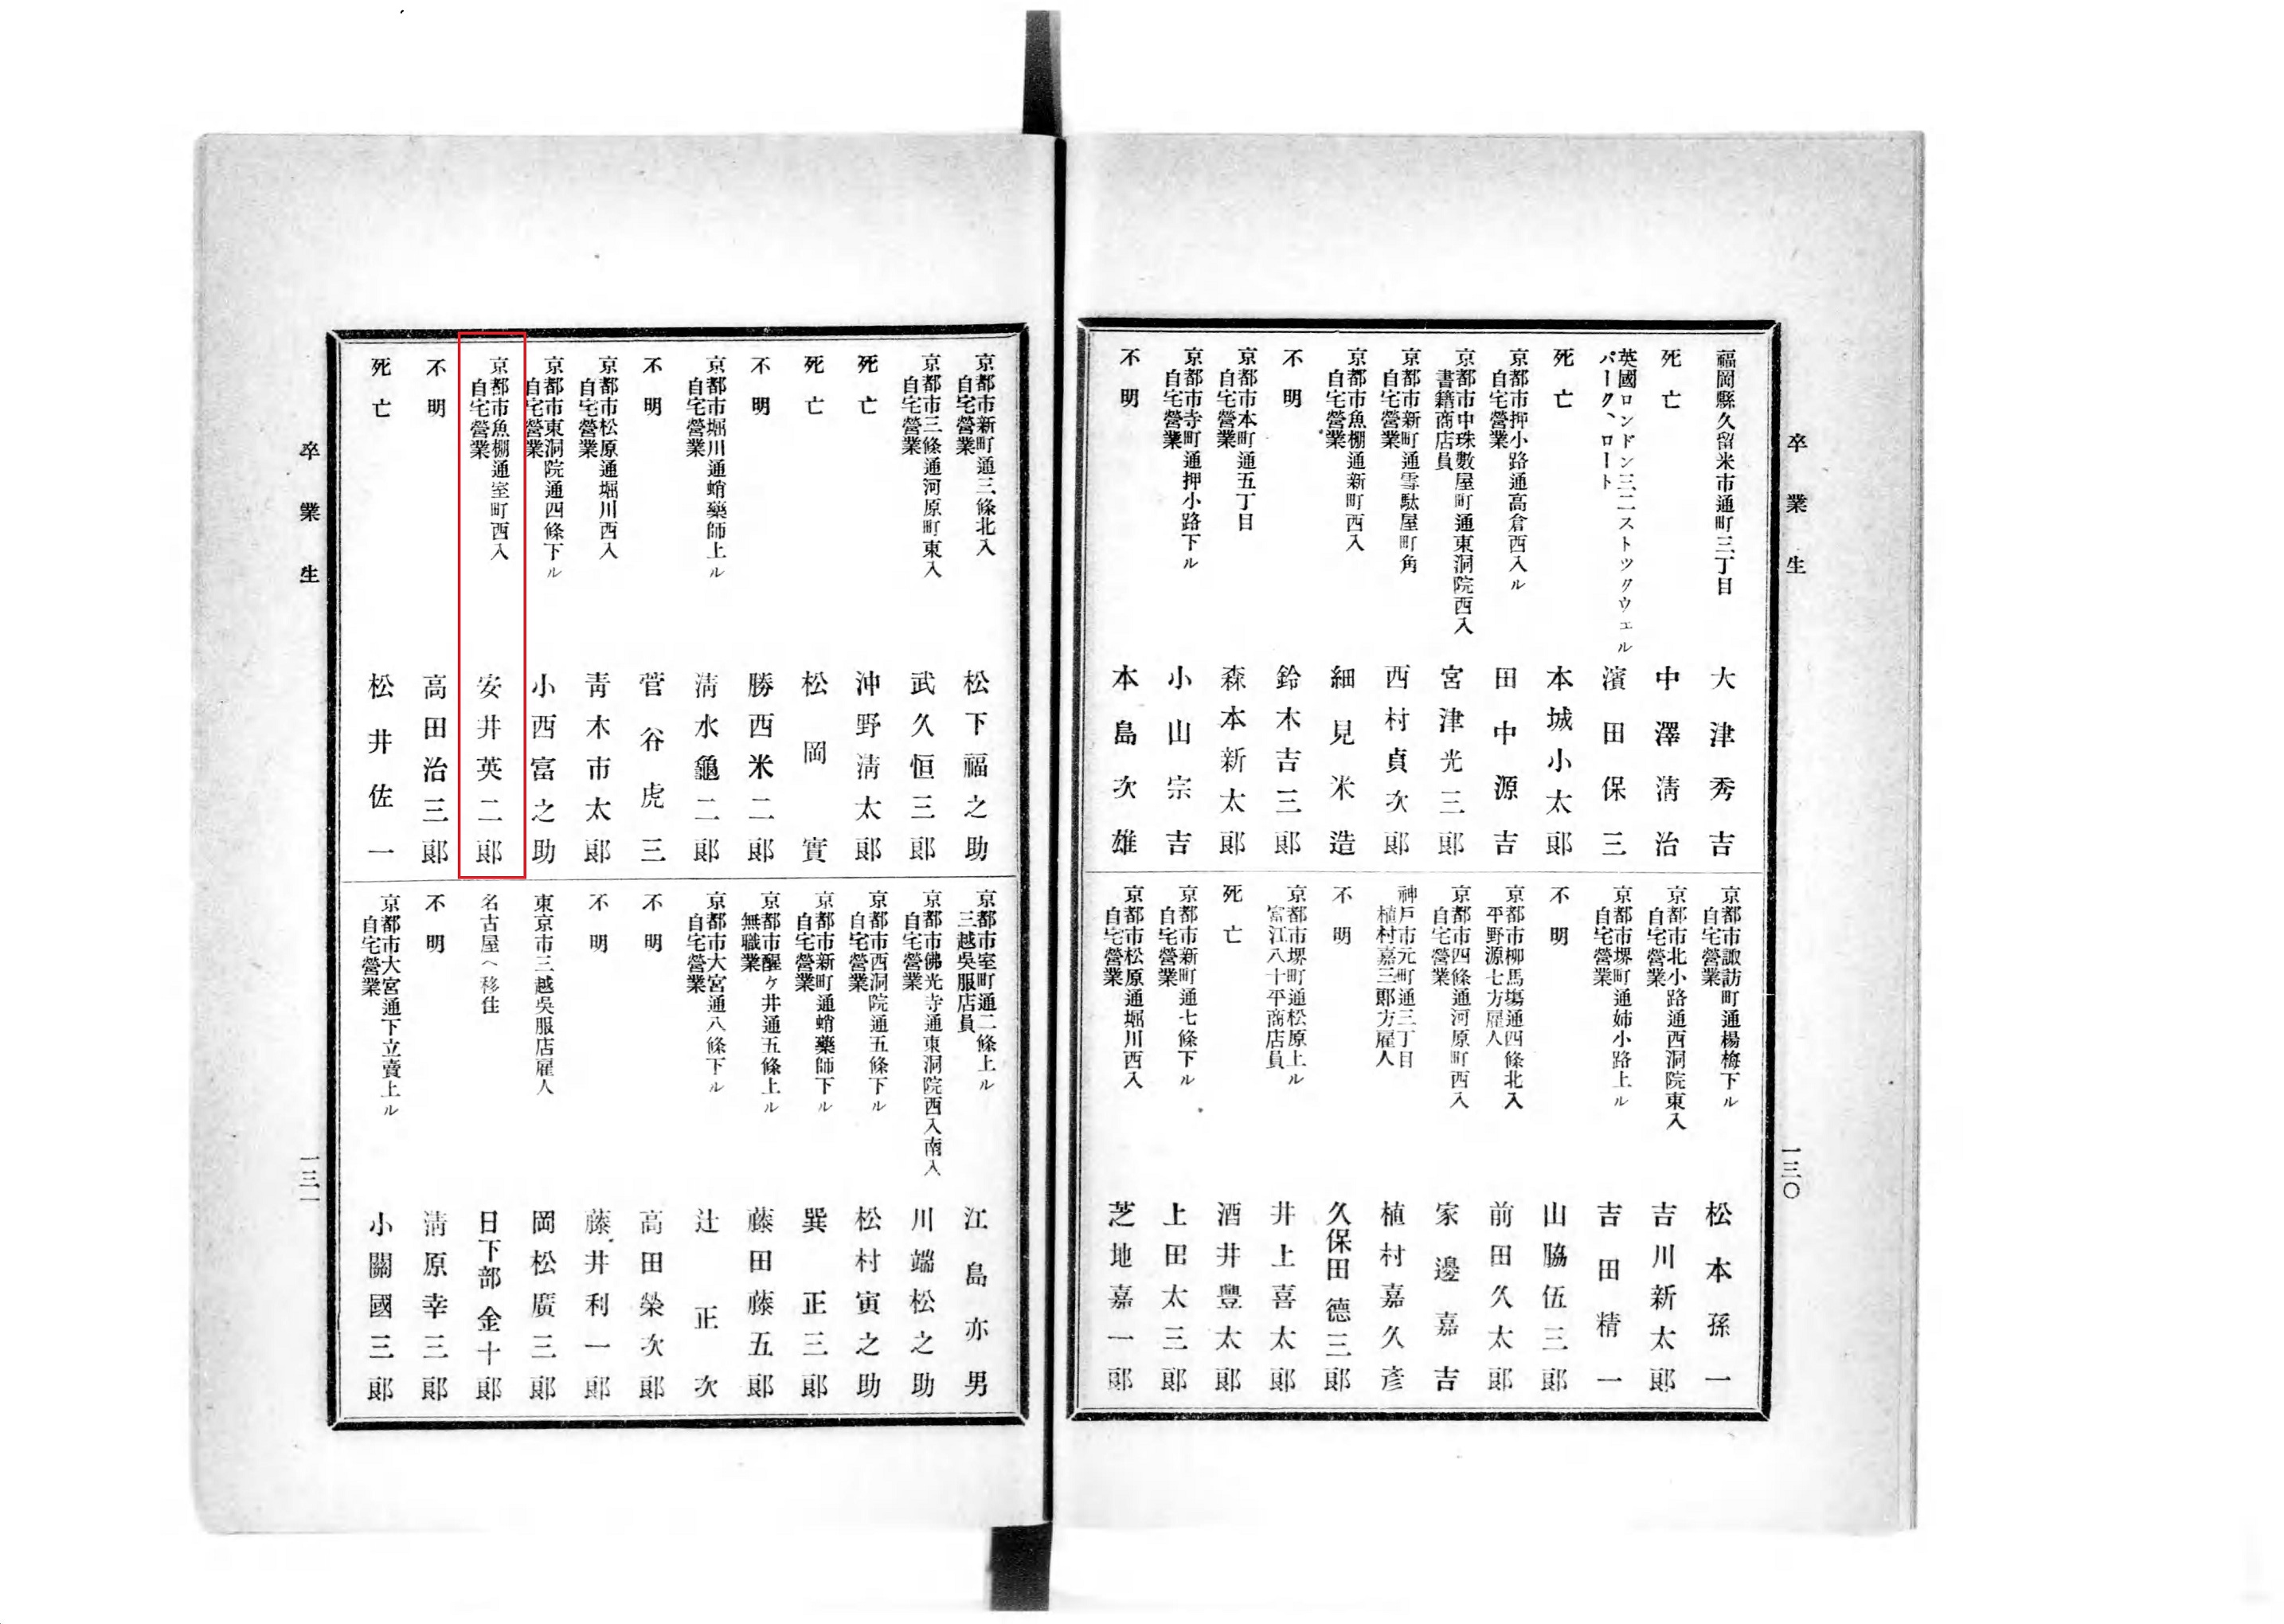 卒業生
一三〇
福岡縣久留米市通町三丁目
大津秀吉
死亡
中澤淸治
英國ロンドン三二ストツクウェル
パークヘロート
濱田保三
死亡
本城小太郞
京都市押小路通高倉西入ル
自宅營業
田中源吉
京都市中珠數屋町通東洞院西入
書籍商店員
宮津光三郞
京都市新町通雪駄屋町角
自宅營業
西村貞次郞
京都市魚棚通新町西入
自宅營業
細見米造
不明
鈴木吉三郞
京都市本町通五丁目
自宅營業
森本新太郞
京都市寺町通押小路下ル
自宅營業
小山宗吉
不明
本島次雄
京都市諏訪町通楊梅下ル
自宅營業
松本孫一
京都市北小路通西洞院東入
自宅營業
吉川新太郞
京都市堺町通姉小路上ル
自宅營業
吉田精一
不明
山脇伍三郞
京都市柳馬塲通四條北入
平野源七方雇人
前田久太郞
京都市四條通河原町西入
自宅營業
家邊嘉吉
神戶市元町通三丁目
植村嘉三郞方雇人
植村嘉久彥
不明
久保田德三郞
京都市堺町通松原上ル
富江八十平商店員
井上喜太郞
死亡
酒井豐太郞
京都市新町通七條下ル
自宅營業
上田太三郞
京都市松原通堀川西入
自宅營業
芝地嘉一郞
京都市新町通三條北入
自宅營業
松下福之助
京都市三條通河原町東入
自宅營業
武久恒三郞
死亡
沖野淸太郞
死亡
松岡實
不明
勝西米二郞
京都市堀川通蛸藥師上ル
自宅營業
淸水龜二郞
不明
菅谷虎三
京都市松原通堀川西入
自宅營業
靑木市太郞
京都市東洞院通四條下ル
自宅營業
小西富之助
京都市魚棚通室町西入
自宅營業
安井英二郞
不明
高田治三郞
死亡
松井佐一
京都市室町通二條上ル
三越吳服店員
江島亦男
京都市佛光寺通東洞院西入南入
自宅營業
川端松之助
京都市西洞院通五條下ル
自宅營業
松村寅之助
京都市新町通蛸藥師下ル
自宅營業
巽正三郞
京都市醒ケ井通五條上ル
無職業
藤田藤五郞
京都市大宮通八條下ル
自宅營業
辻正次
不明
高田榮次郞
不明
藤井利一郞
東京市三越吳服店雇人
岡松廣三郞
名古屋へ移住
日下部金十郞
不明
淸原幸三郞
京都市大宮通下立賣上ル
自宅營業
小關國三郞
卒業生
一三一